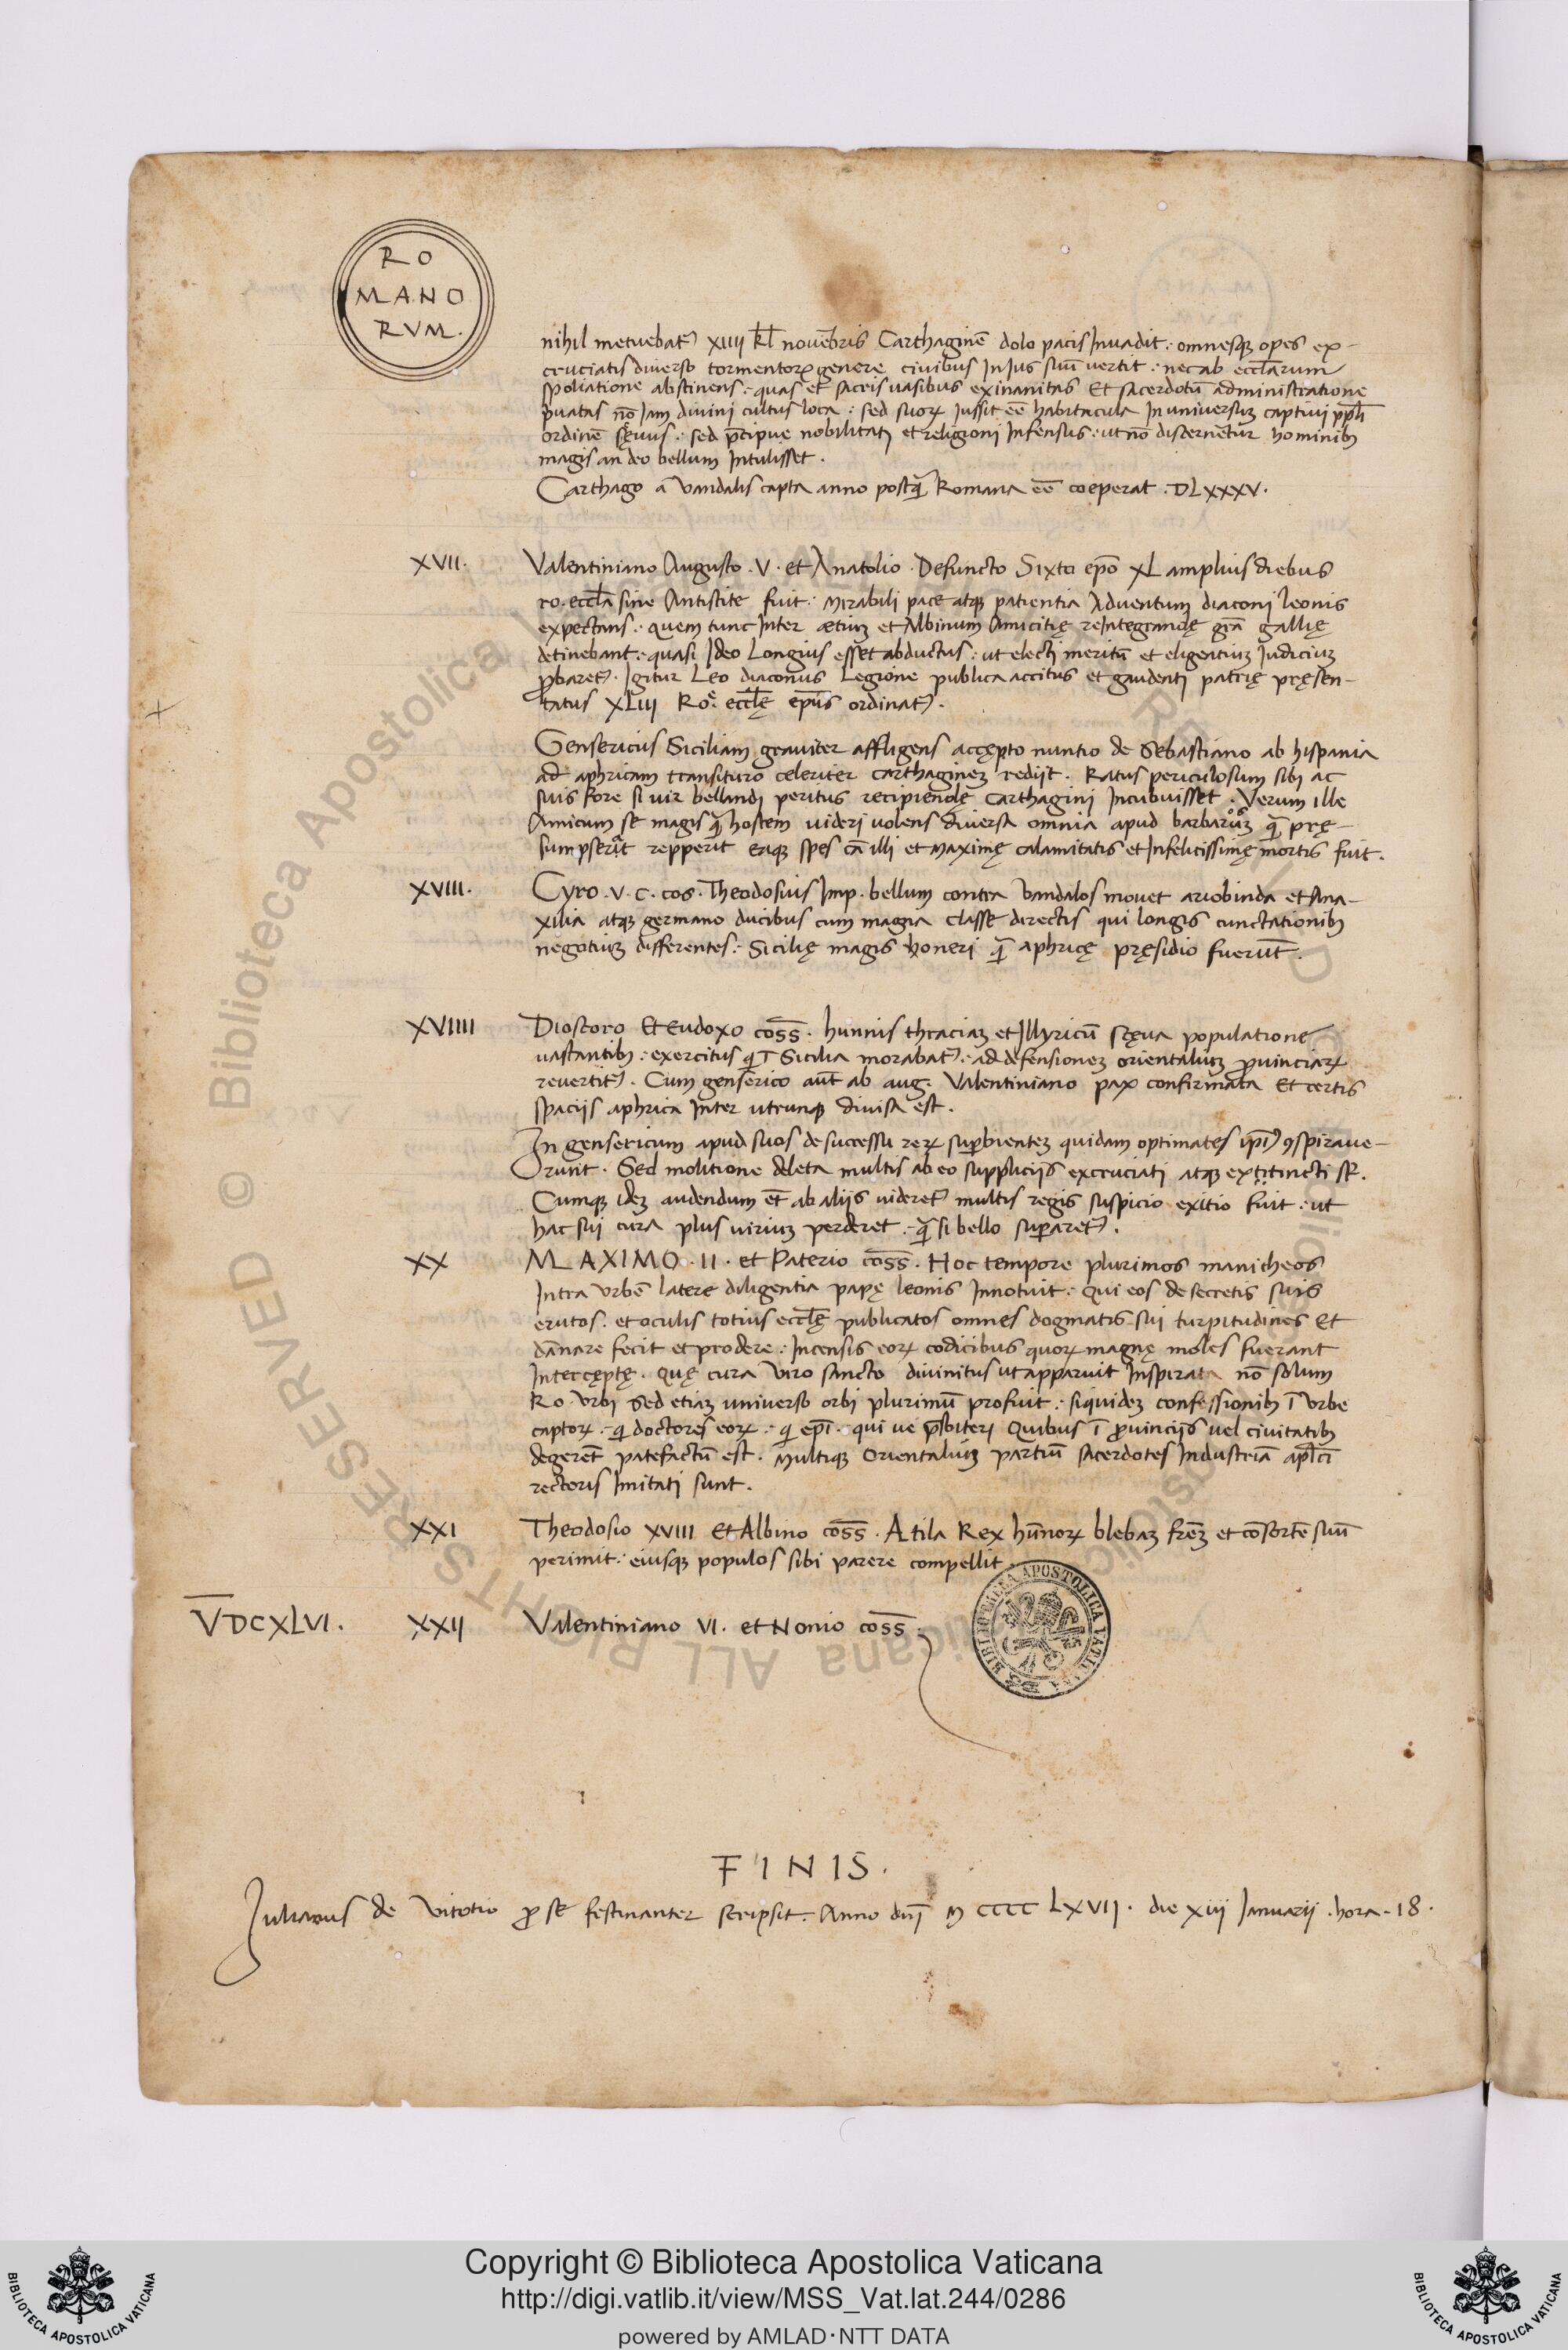 RO
MANO
RVM.
nihil metuebat᷑ XIIII kł novẽbris Carthaginẽ dolo pacis Invadit: omnesqꝫ opes ex-
cruciatis diverso tormentoꝝ genere civibus In Jus suũ vertit: nec ab eccl̃arum
spoliatione abstinens: quas et sacris vasibus exinanitas Et sacerdotũ administratione
p̱vatas nõ Jam divini cultus loca: sed suoꝝ Jussit eẽ habitacula In universuꝫ captivi pp̃li
ordinẽ sęvus: sed p̃cipue nobilitatj et religioni Infensus: ut nõ discernẽtur hominibꝫ
magis an deo bellum Intulisset.
Carthago a vandalis capta anno postq̃ Romana eẽ coeperat. DLXXXV.
XVII. Valentiniano Augusto. V. et Anatolio. Defuncto Sixto ep̃o XL amplius diebus
ro. eccl̃a sine Antistite fuit: mirabili pace atqꝫ patientia Adventum diaconi leonis
expectans: quem tunc Inter ætiuꝫ et Albinum Amicitię reIntegrandę gr̃a gallię
detinebant: quasi Ideo Longius esset abductus: ut electi meritũ et eligentiuꝫ Iudiciuꝫ
ꝓbaret᷑. Igitur Leo diaconus Legione publica accitus et gaudenti patrię pręsen-
tatus XLIII Ro. eccl̃ę ep̃us ordinat᷑.
Gensericus Siciliam graviter affligens accępto nuntio de Sebastiano ab hispania
ad aphricam transituro celeriter carthagineꝫ redijt. Ratus periculosum sibi ac
suis fore si vir bellandj peritus recipiendę carthagini Incubuisset. Verum ille
Amicum se magis q̃ hostem videri volens diversa omnia apud barbaros q̃ prę-
sumpserat repperit eaqꝫ spes cã illi et maximę calamitatis et Infelicissimę mortis fuit.
XVIII. Cyro. v. c. cos. Theodosius Imp. bellum contra vandalos movet ariobinda et Ana-
xilia atqꝫ germano ducibus cum magna classe directis qui longis cunctationibꝫ
negotiuꝫ differentes: Sicilię magis honeri q̃ aphricę pręsidio fuerũt.
XVIIII Dioscoro Et Eudoxo cos̃s. hunnis thraciaꝫ et Illyricũ sęva populatione
vastantibꝫ: exercitus q̃ ĩ Sicilia morabat᷑: ad defensioneꝫ orientaliuꝫ ꝓvinciaꝝ
revertit᷑. Cum genserico aũt ab aug. Valentiniano pax confirmata Et certis
spaciis aphrica Inter utrunqꝫ divisa est.
In gensericum apud suos de successu reꝝ suꝑbienteꝫ quidam optimates ip̃i᷑ ꝯspirave-
runt. Sed molitione deleta multis ab eo suppliciis excruciati atqꝫ extincti sr̃.
Cumqꝫ ideꝫ audendum et̃ ab aliis videret᷑ multis regis suspicio exitio fuit: ut
hac sui cura plus viriuꝫ perderet: q̃ si bello suꝑaret᷑.
XX MAXIMO. II. et Paterio cos̃s. Hoc tempore plurimos manicheos
Intra urbẽ latere diligentia papę leonis Innotuit: Qui eos de secretis suis
erutos. et oculis totius eccl̃ę publicatos omnes dogmatis sui turpitudines Et
dãnare fecit et prodere: Incensis eoꝝ codicibus quoꝝ magnę moles fuerant
Intercęptę. Quę cura viro sancto divinitus ut apparuit Inspirata nõ solum
Ro. vrbi sed etiaꝫ universo orbi plurimũ profuit: siquideꝫ confessionibꝫ ĩ Vrbe
captoꝝ: q̃ doctores eoꝝ: q̃ ep̃i: qui ve p̃sbiterj Quibus ĩ ꝓvinciis vel civitatibꝫ
degerẽt patefactũ est. Multiqꝫ Orientaliuꝫ partiũ sacerdotes Industriã apl̃ici
rectoris Imitati sunt.
XXI Theodosio XVIII Et Albino cos̃s. Atila Rex hũnoꝝ blebaꝫ fr̃eꝫ et cõsortẽ suũ
perimit: eiusqꝫ populos sibi parere compellit.
V̅DCXLVI. XXII Valentiniano VI. et Nonio cos̃s.
BIBLIOTECA APOSTOLICA VATICANA
FINIS.
Iulianus de Vitotio ꝓ se festinanter scripsit. Anno dñi MCCCCLXVII. die xiij Januarii. hora. 18.
© Biblioteca Apostolica Vaticana ALL RIGHTS RESERVED
Copyright © Biblioteca Apostolica Vaticana
http://digi.vatlib.it/view/MSS_Vat.lat.244/0286
powered by AMLAD·NTT DATA
BIBLIOTECA APOSTOLICA VATICANA
BIBLIOTECA APOSTOLICA VATICANA